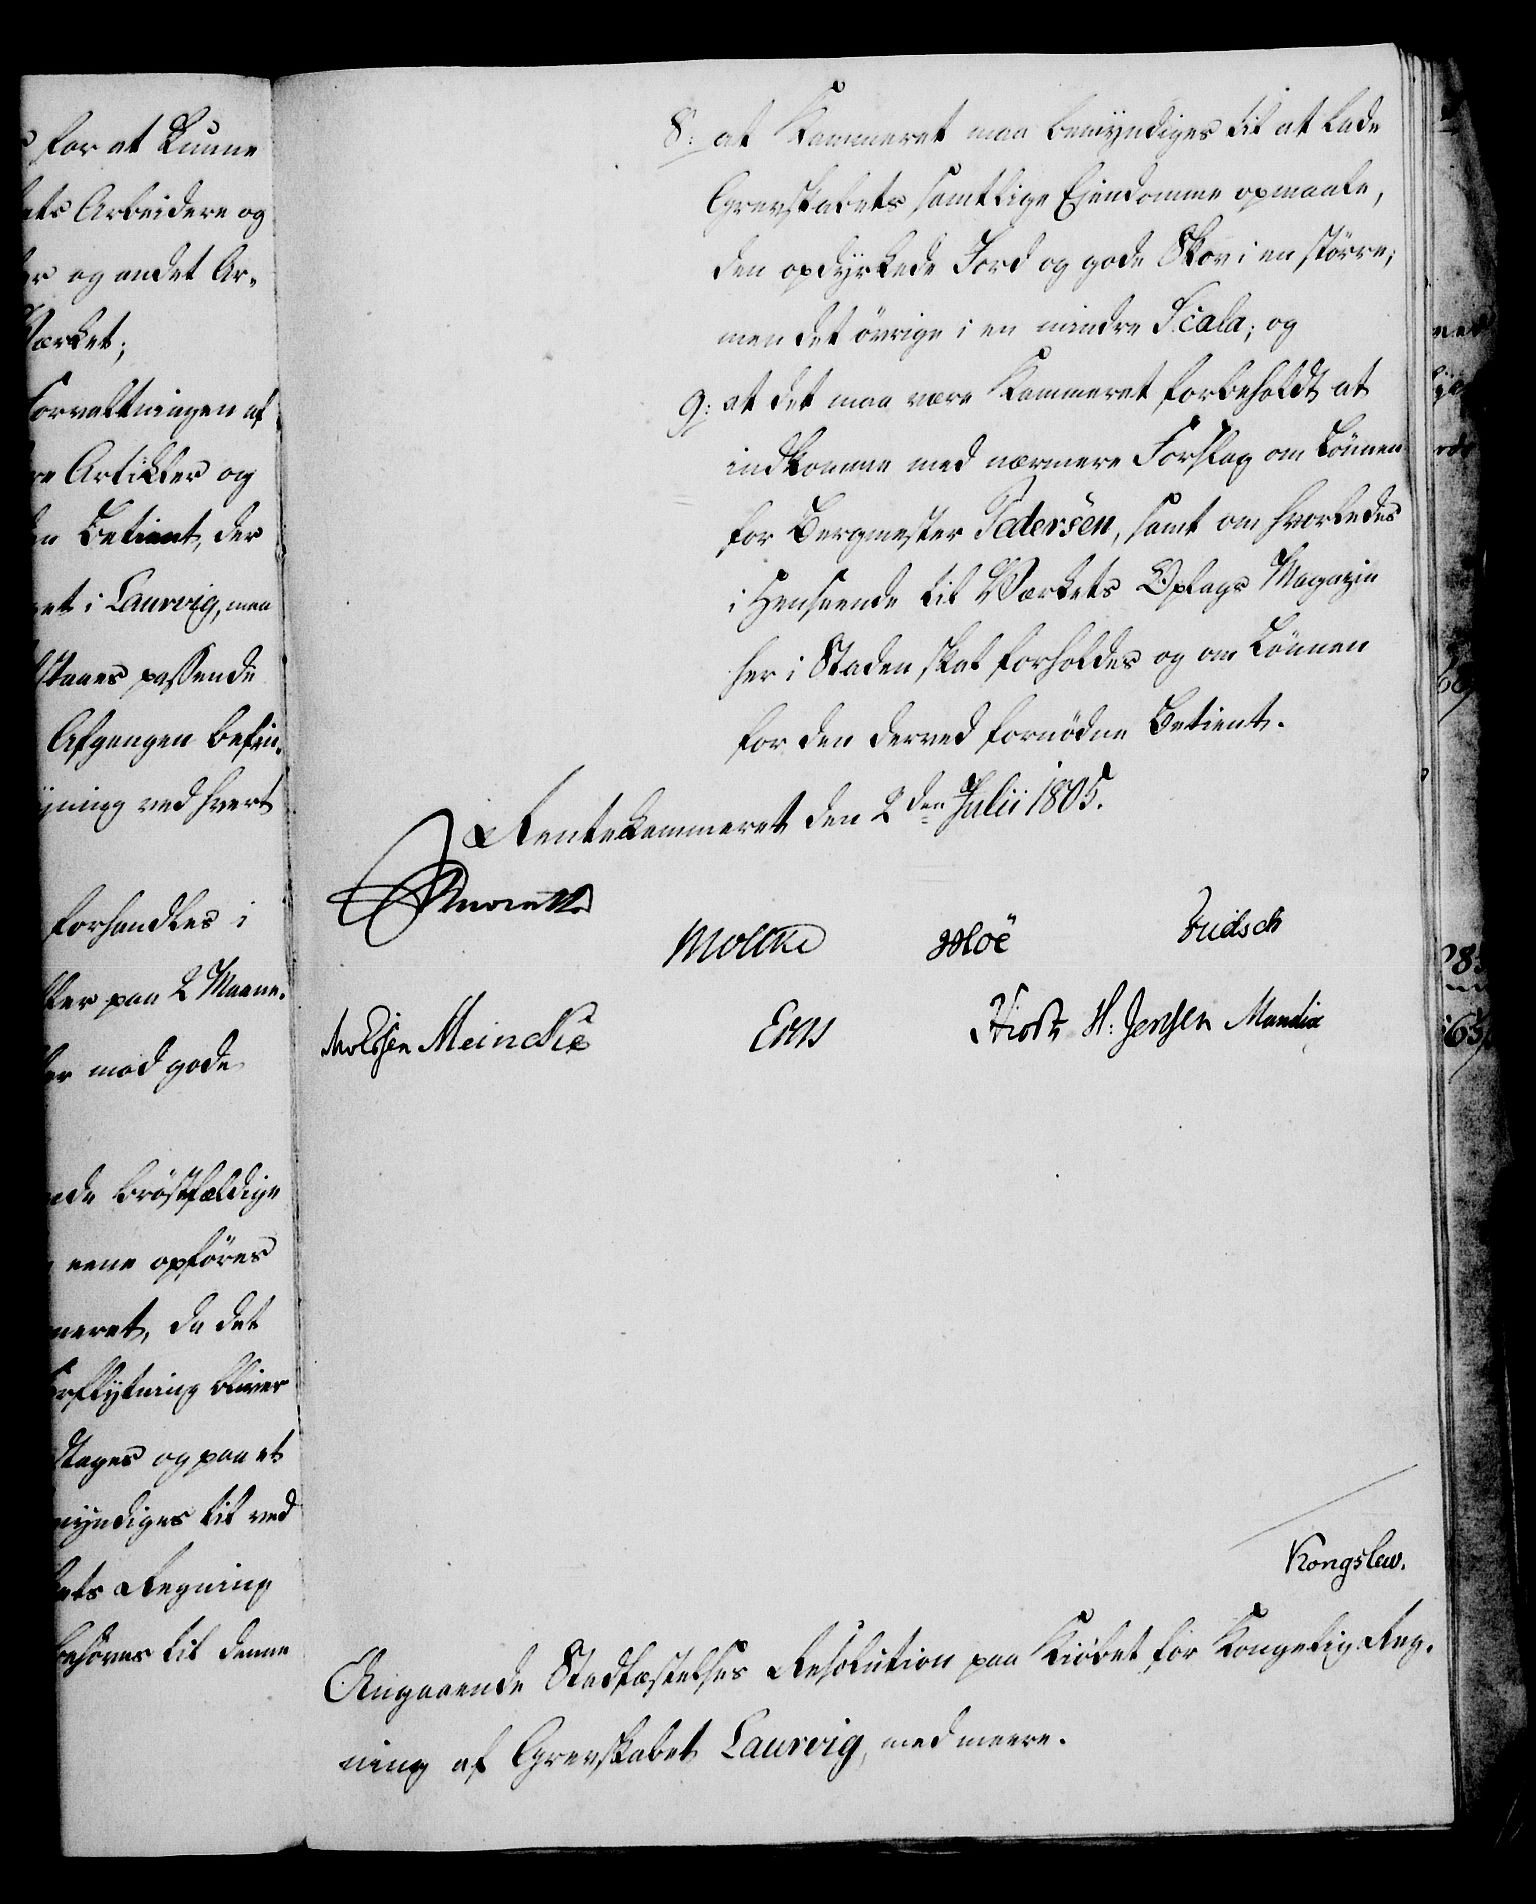 for at kunne
ets Arbeidere og
og andet Ar-
Værket;
Forvaltningen af
re Artikler og
en Betient, der
et i Laurvig, maa
passende
Afgangen befin-
ved hvert
forhandles i
paa 2 Maane-
mod gode
brøstfældige
eene opføres
meret, da det
Forflytning bliver
og paa et
myndiges til ved
ets Regning
behøves til denne
8: at Kammeret maa bemyndiges til at lade
Grevskabets samtlige Ejendomme opmaale,
den opdyrkede Jord og gode Skov i en større,
men det øvrige i en mindre Scala; og
9: at det maa være Kammeret forbeholdt at
indkomme med nærmere Forslag om Lønnen
for Bergmester Pedersen, samt om hvorledes
i Henseende til Værkets Oplags Magazin
her i Staden, skal forholdes og om Lønnen
for den derved fornødne Betient.
Rentekammeret den 2den Julii 1805.
Moltke Moë
Meincke H: Jensen
Kongslew.
Angaaende Stadfæstelses Resolution paa Kiøbet for Kongelig Reg-
ning af Grevskabet Laurvig, med meere.